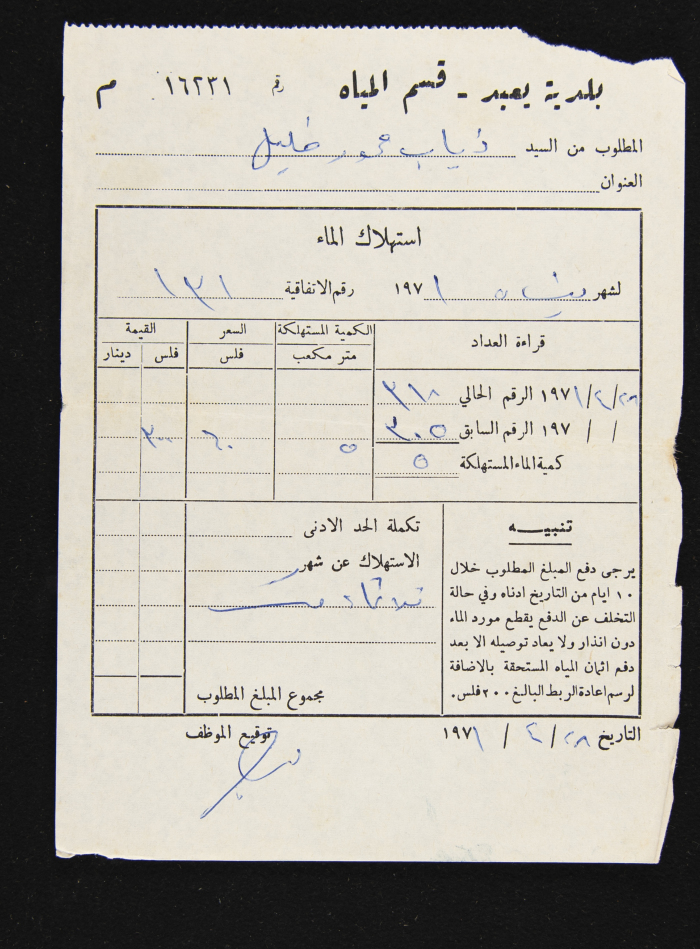 بلدية يعبد - قسم المياه رقم ١٦٢٣١ م
المطلوب من السيد ذياب محمود خليل
العنوان
استهلاك الماء
لشهر نيسان ١٩٧١ رقم الاتفاقية ١٣١
قراءة العداد الكمية المستهلكة السعر القيمة
متر مكعب فلس فلس دينار
٢٨/٤/١٩٧١ الرقم الحالي
/ / ١٩٧ الرقم السابق ٣٠٥ ٥ ٦٠ ٣٠٠
كمية الماء المستهلكة ٥
تنبيه
يرجى دفع المبلغ المطلوب خلال
١٠ ايام من التاريخ ادناه وفي حالة
التخلف عن الدفع يقطع مورد الماء
دون انذار ولا يعاد توصيله الا بعد
دفع اثمان المياه المستحقة بالاضافة
لرسم اعادة الربط البالغ ٢٠٠ فلس.
تكملة الحد الادنى
الاستهلاك عن شهر
مجموع المبلغ المطلوب
التاريخ ٢٨/٤/١٩٧١ توقيع الموظف